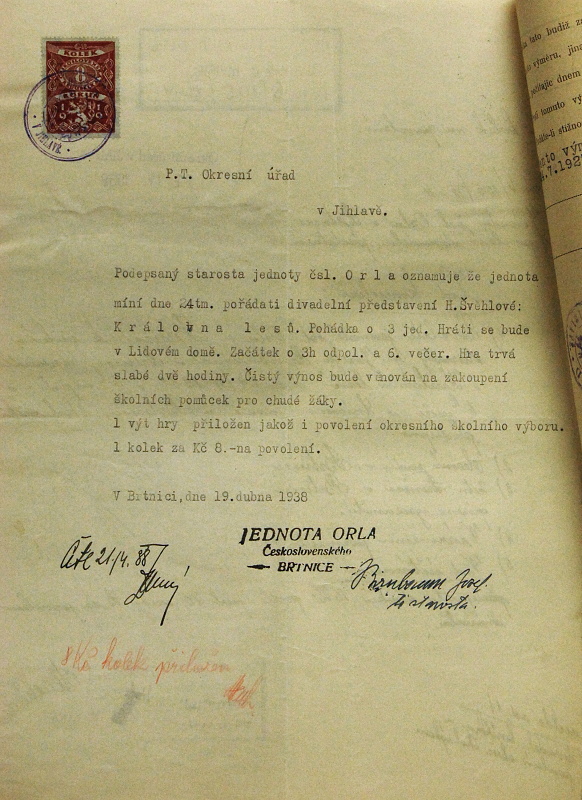 KOLEK
8
V JIHLAVĚ
P.T. Okresní úřad
v Jihlavě.
Podepsaný starosta jednoty čsl. O r l a oznamuje že jednota
míní dne 24tm. pořádati divadelní představení H.Švéhlové:
K r á l o v n a  l e s ů. Pohádka o 3 jed. Hráti se bude
v Lidovém domě. Začátek o 3h odpol. a 6. večer. Hra trvá
slabé dvě hodiny. Čistý výnos bude věnován na zakoupení
školních pomůcek pro chudé žáky.
1 výt hry přiložen jakož i povolení okresního školního výboru.
1 kolek za Kč 8.-na povolení.
V Brtnici,dne 19.dubna 1938
JEDNOTA ORLA
Československého
BRTNICE
21/4. 38
Birnbaum Josef
t.č. starosta.
8 Kč kolek přiložen